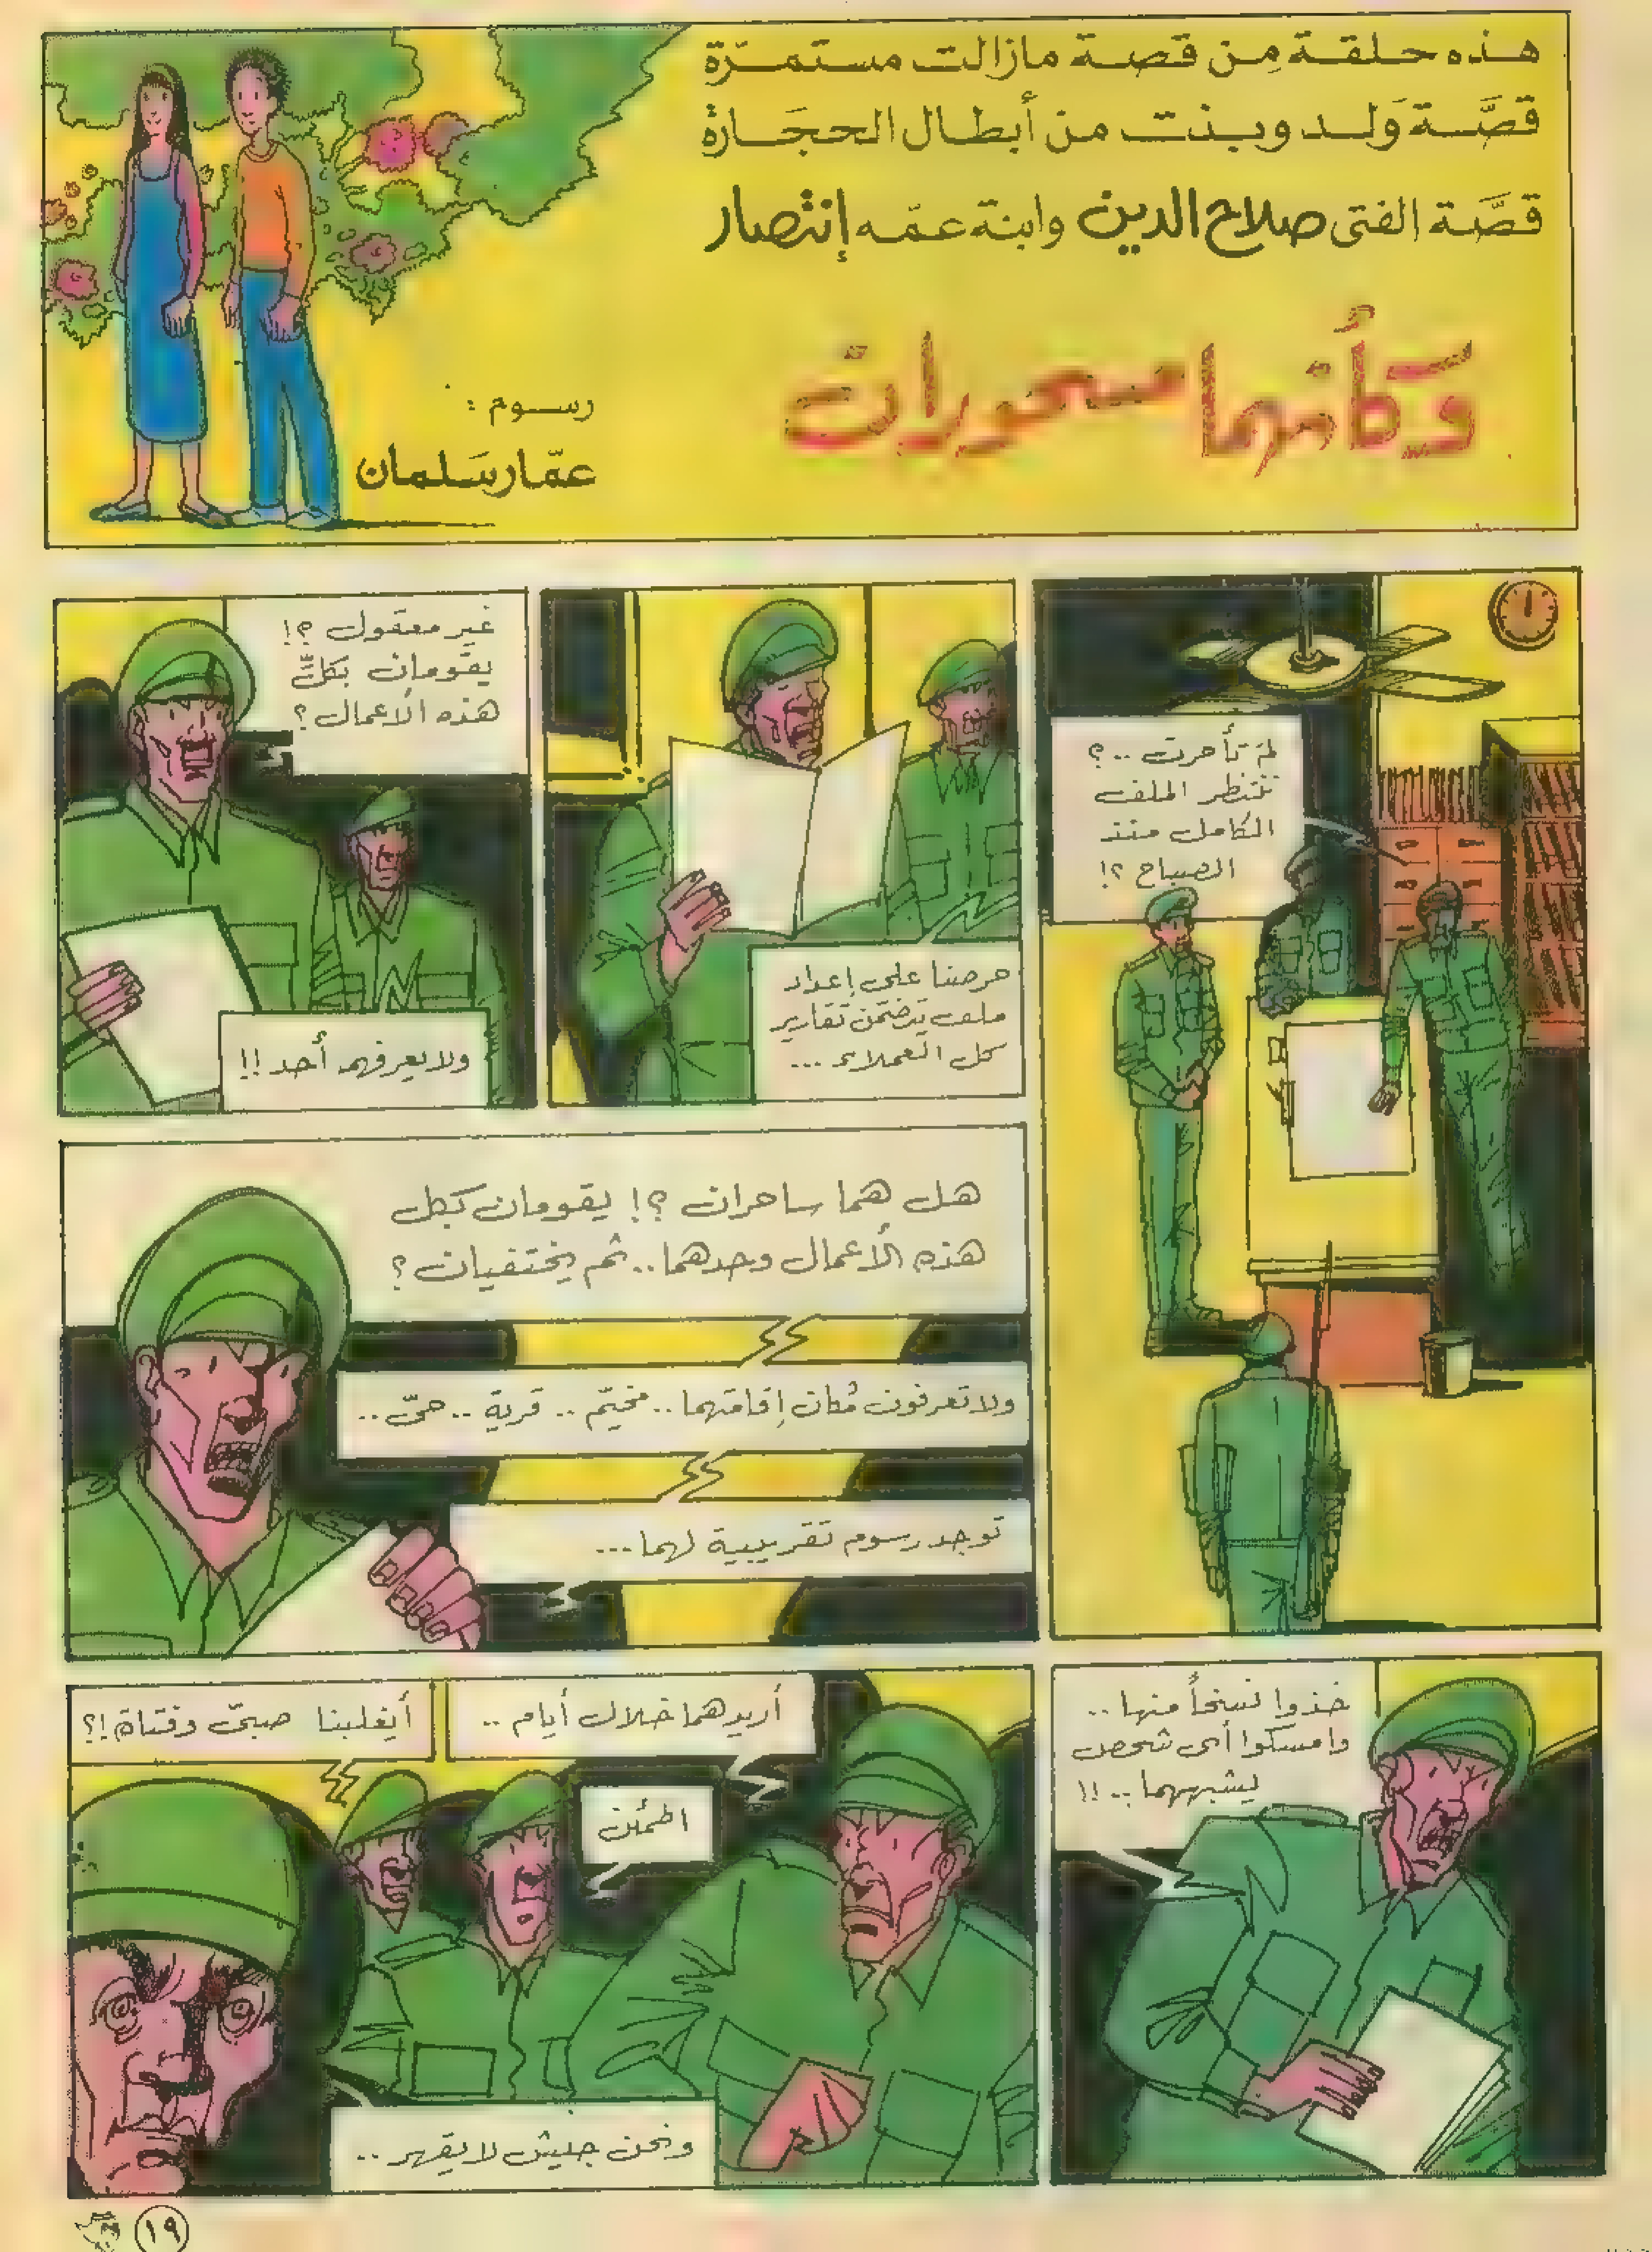 هذه حلقة مِن قصة مازالت مستمرّة
قصَّة وَلد وبنت من أبطال الحجَارة
قصَّة الفتى صلاح الدين وابنة عمّه إنتصار
وَكأنهما سحورات
رسوم :
عمّار سَلمان
لمَ تأخرت ..؟
ننتظر الملف
الكامل منذ
الصباح ؟!
حرصنا على إعداد
ملف يتضمّن تقارير
كل العملاء ...
غير معقول ؟!
يقومان بكلّ
هذه الأعمال ؟
ولا يعرفهم أحد !!
هل هما ساحران ؟! يقومان بكل
هذه الأعمال وحدهما .. ثم يختفيان ؟
ولا تعرفون مكان إقامتهما .. مخيّم .. قرية .. حيّ ..
توجد رسوم تقريبية لهما ...
خذوا نسخاً منها ..
وامسكوا أي شخص
يشبههما .. !!
أريدهما خلال أيام ..
اطمئن
أيغلبنا صبيّ وفتاة !؟
ونحن جيش لا يقهر ..
١٩